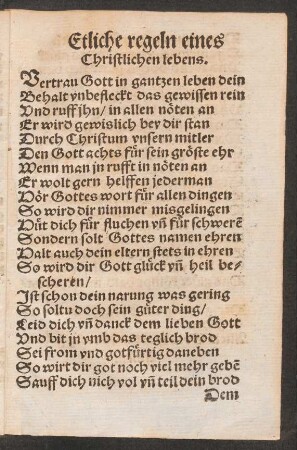 Etliche regeln eines
Christlichen lebens.
Vertrau Gott in gantzen leben dein
Behalt vnbefleckt das gewissen rein
Vnd ruff jhn/ in allen nöten an
Er wird gewislich bey dir stan
Durch Christum vnsern mitler
Den Gott achts für sein gröste ehr
Wenn man jn rufft in nöten an
Er wolt gern helffen jederman
Hör Gottes wort für allen dingen
So wird dir nimmer misgelingen
Hüt dich für fluchen vñ für schwerē
Sondern solt Gottes namen ehren
Halt auch dein eltern stets in ehren
So wird dir Gott glück vñ heil be-
scheren/
Jst schon dein narung was gering
So soltu doch sein guter ding/
Leid dich vñ danck dem lieben Gott
Vnd bit jn vmb das teglich brod
Sei from vnd gotfürtig daneben
So wirt dir got noch viel mehr gebē
Sauff dich nich vol vñ teil dein brod
Dem